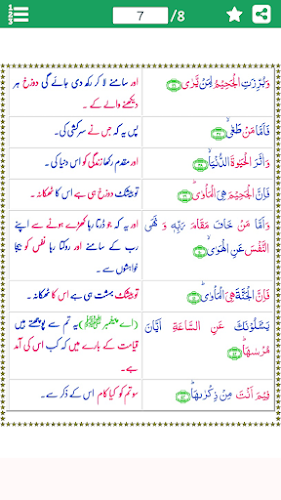 7 /8
وَبُرِّزَتِ الْجَحِيْمُ لِمَنْ يَّرٰى ﴿۳۶﴾
اور سامنے لا کر رکھ دی جائے گی دوزخ ہر
دیکھنے والے کے ۔
فَاَمَّا مَنْ طَغٰى ۙ﴿۳۷﴾
پس یہ کہ جس نے سرکشی کی۔
وَاٰثَرَ الْحَيٰوةَ الدُّنْيَا ۙ﴿۳۸﴾
اور مقدم رکھا زندگی کو اس دنیا کی ۔
فَاِنَّ الْجَحِيْمَ هِىَ الْمَاْوٰى ؕ﴿۳۹﴾
تو بیشک دوزخ ہی ہے اس کا ٹھکانہ ۔
وَاَمَّا مَنْ خَافَ مَقَامَ رَبِّهٖ وَ نَهَى
النَّفْسَ عَنِ الْهَوٰى ۙ﴿۴۰﴾
اور یہ کہ جو ڈرتا رہا کھڑے ہونے سے اپنے
رب کے سامنے اور روکتا رہا نفس کو بیجا
خواہشوں سے ۔
فَاِنَّ الْجَنَّةَ هِىَ الْمَاْوٰى ؕ﴿۴۱﴾
تو بیشک بہشت ہی ہے اس کا ٹھکانہ۔
يَسْـَٔلُوْنَكَ عَنِ السَّاعَةِ اَيَّانَ
مُرْسٰٮهَا ؕ﴿۴۲﴾
(اے پیغمبر ﷺ) یہ تم سے پوچھتے ہیں
قیامت کے بارے میں کہ کب اس کی آمد
ہے ۔
فِيْمَ اَنْتَ مِنْ ذِكْرٰٮهَا ؕ﴿۴۳﴾
سو تم کو کیا کام اس کے ذکر سے۔